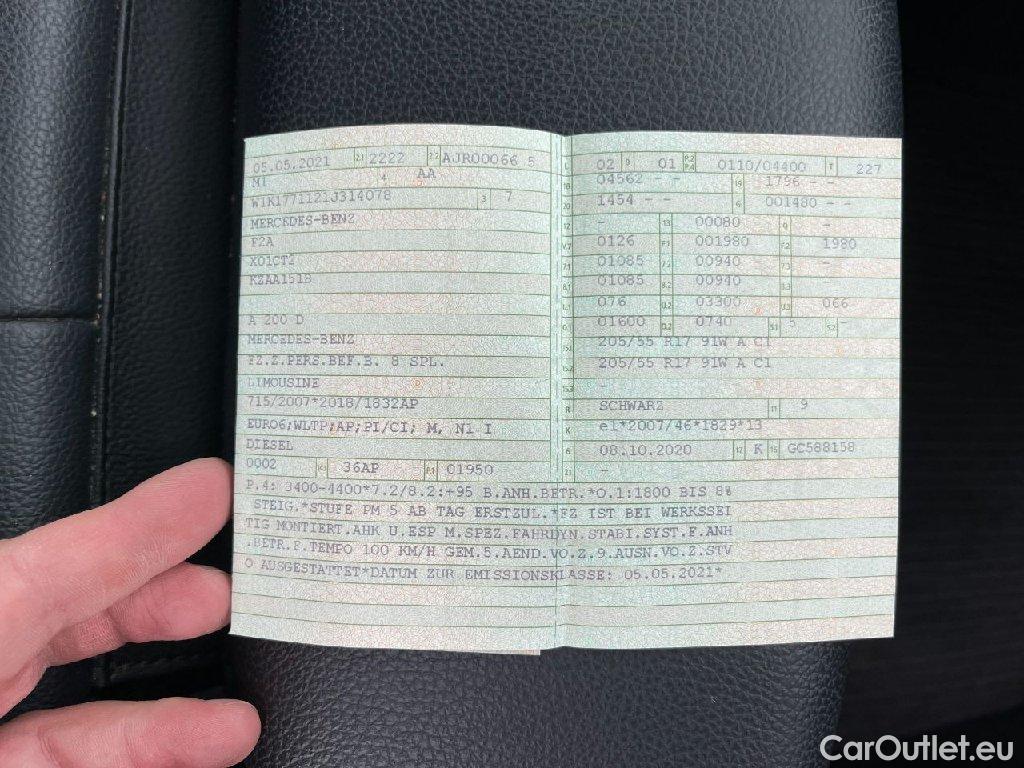 05.05.2021 2.1 2222 2.2 AJR00066 5
M1 4 AA
W1K1771121J314078 3 7
MERCEDES-BENZ
F2A
X01CT2
KZAA151B
A 200 D
MERCEDES-BENZ
FZ.Z.PERS.BEF.B. 8 SPL.
LIMOUSINE
715/2007*2018/1832AP
EURO6;WLTP;AP;PI/CI; M, N1 I
DIESEL
0002 36AP P.1 01950
L 02 9 01 P.2 P.4 0110/04400 T 227
18 04562 - - 19 1796 - -
20 1454 - - G 001480 - -
12 - 13 00080 Q -
V.7 0126 F.1 001980 F.2 1980
7.1 01085 7.2 00940 7.3 -
8.1 01085 8.2 00940 -
076 U.2 03300 U.3 066
O.1 01600 O.2 0740 S.1 5 S.2 -
15.1 205/55 R17 91W A C1
15.2 205/55 R17 91W A C1
-
R SCHWARZ 11 9
K e1*2007/46*1829*13
6 08.10.2020 17 K 16 GC588158
21 -
P.4: 3400-4400*7.2/8.2:+95 B.ANH.BETR.*O.1:1800 BIS 8%
STEIG.*STUFE PM 5 AB TAG ERSTZUL.*FZ IST BEI WERKSSEI
TIG MONTIERT.AHK U.ESP M.SPEZ.FAHRDYN.STABI.SYST.F.ANH
.BETR.F.TEMPO 100 KM/H GEM.5.AEND.VO.Z.9.AUSN.VO.Z.STV
O AUSGESTATTET*DATUM ZUR EMISSIONSKLASSE: 05.05.2021*
CarOutlet.eu